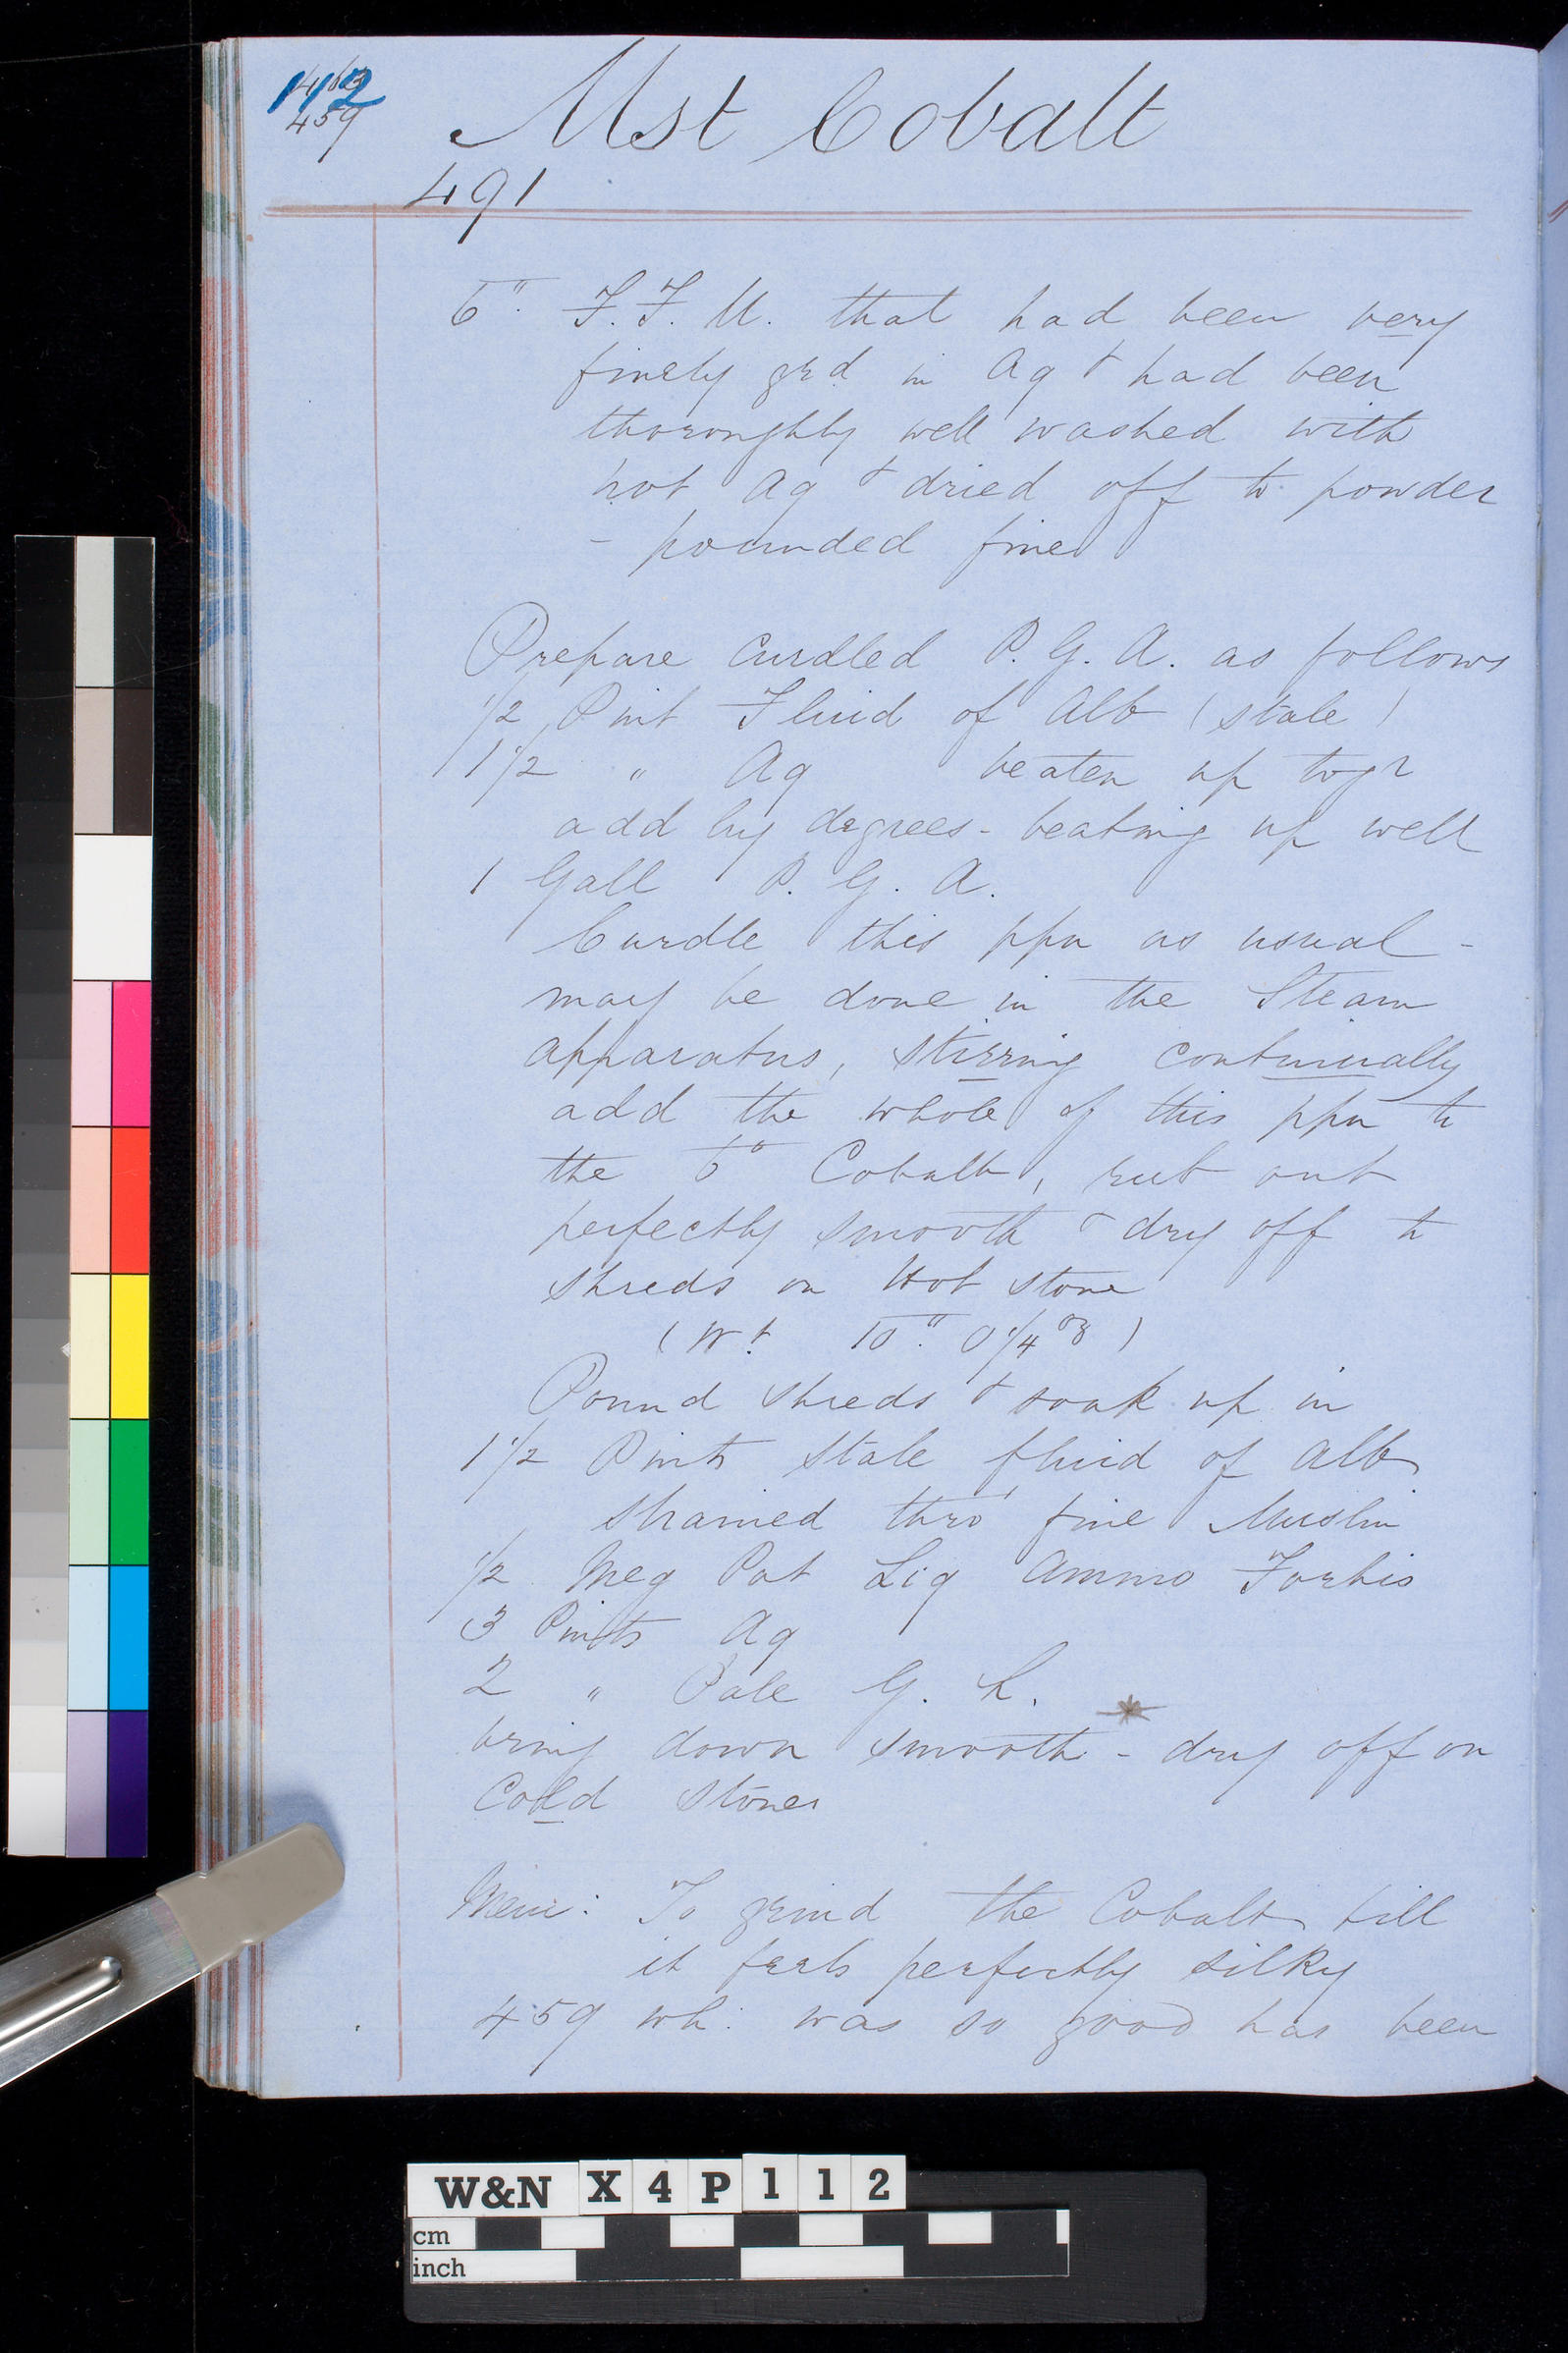 112
459
Mst Cobalt
491
6". F. F. U. that had been very
finely grd in Aq & had been
thoroughly well washed with
hot Aq & dried off to powder
- pounded fine
Prepare Curdled P. G. A. as follows
1/2 Pint Fluid of Alb (stale)
1 1/2 " Aq beaten up togr
add by degrees - beating up well
1 Gall P. G. A.
Curdle this ppn as usual -
may be done in the Steam
apparatus, stirring continually
add the whole of this ppn to
the 6" Cobalt, rub out
perfectly smooth & dry off to
shreds on Hot stone
(Wt. 10". 0 1/4 oz)
Pound shreds & soak up in
1 1/2 Pints stale fluid of Alb
strained thro' fine Muslin
1/2 Meg Pot Liq Ammo Fortis
3 Pints Aq
2 " Pale G. L.
bring down smooth - dry off on
Cold stones
Mem: To grind the Cobalt till
it feels perfectly silky
459 wh: was so good has been
W&N X 4 P 1 1 2
cm
inch